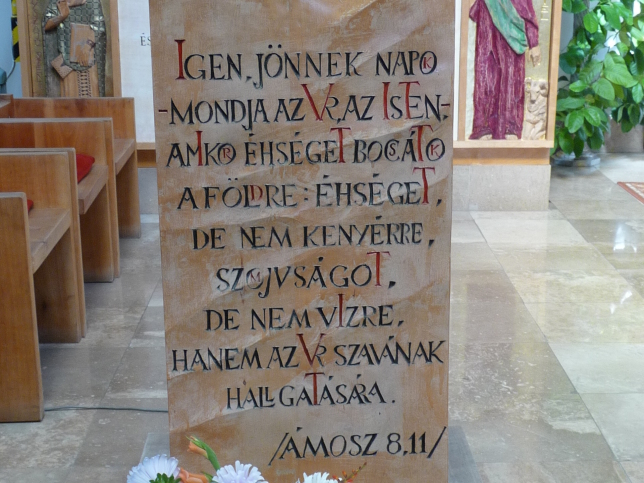 IGEN, JÖNNEK NAPOK
-MONDJA AZ VR, AZ ISTEN,-
AMIKOR ÉHSÉGET BOCSÁTOK
A FÖLDRE : ÉHSÉGET,
DE NEM KENYÉRRE,
SZOMJVSÁGOT,
DE NEM VÍZRE,
HANEM AZ VR SZAVÁNAK
HALLGATÁSÁRA.
/ÁMOSZ 8,11/